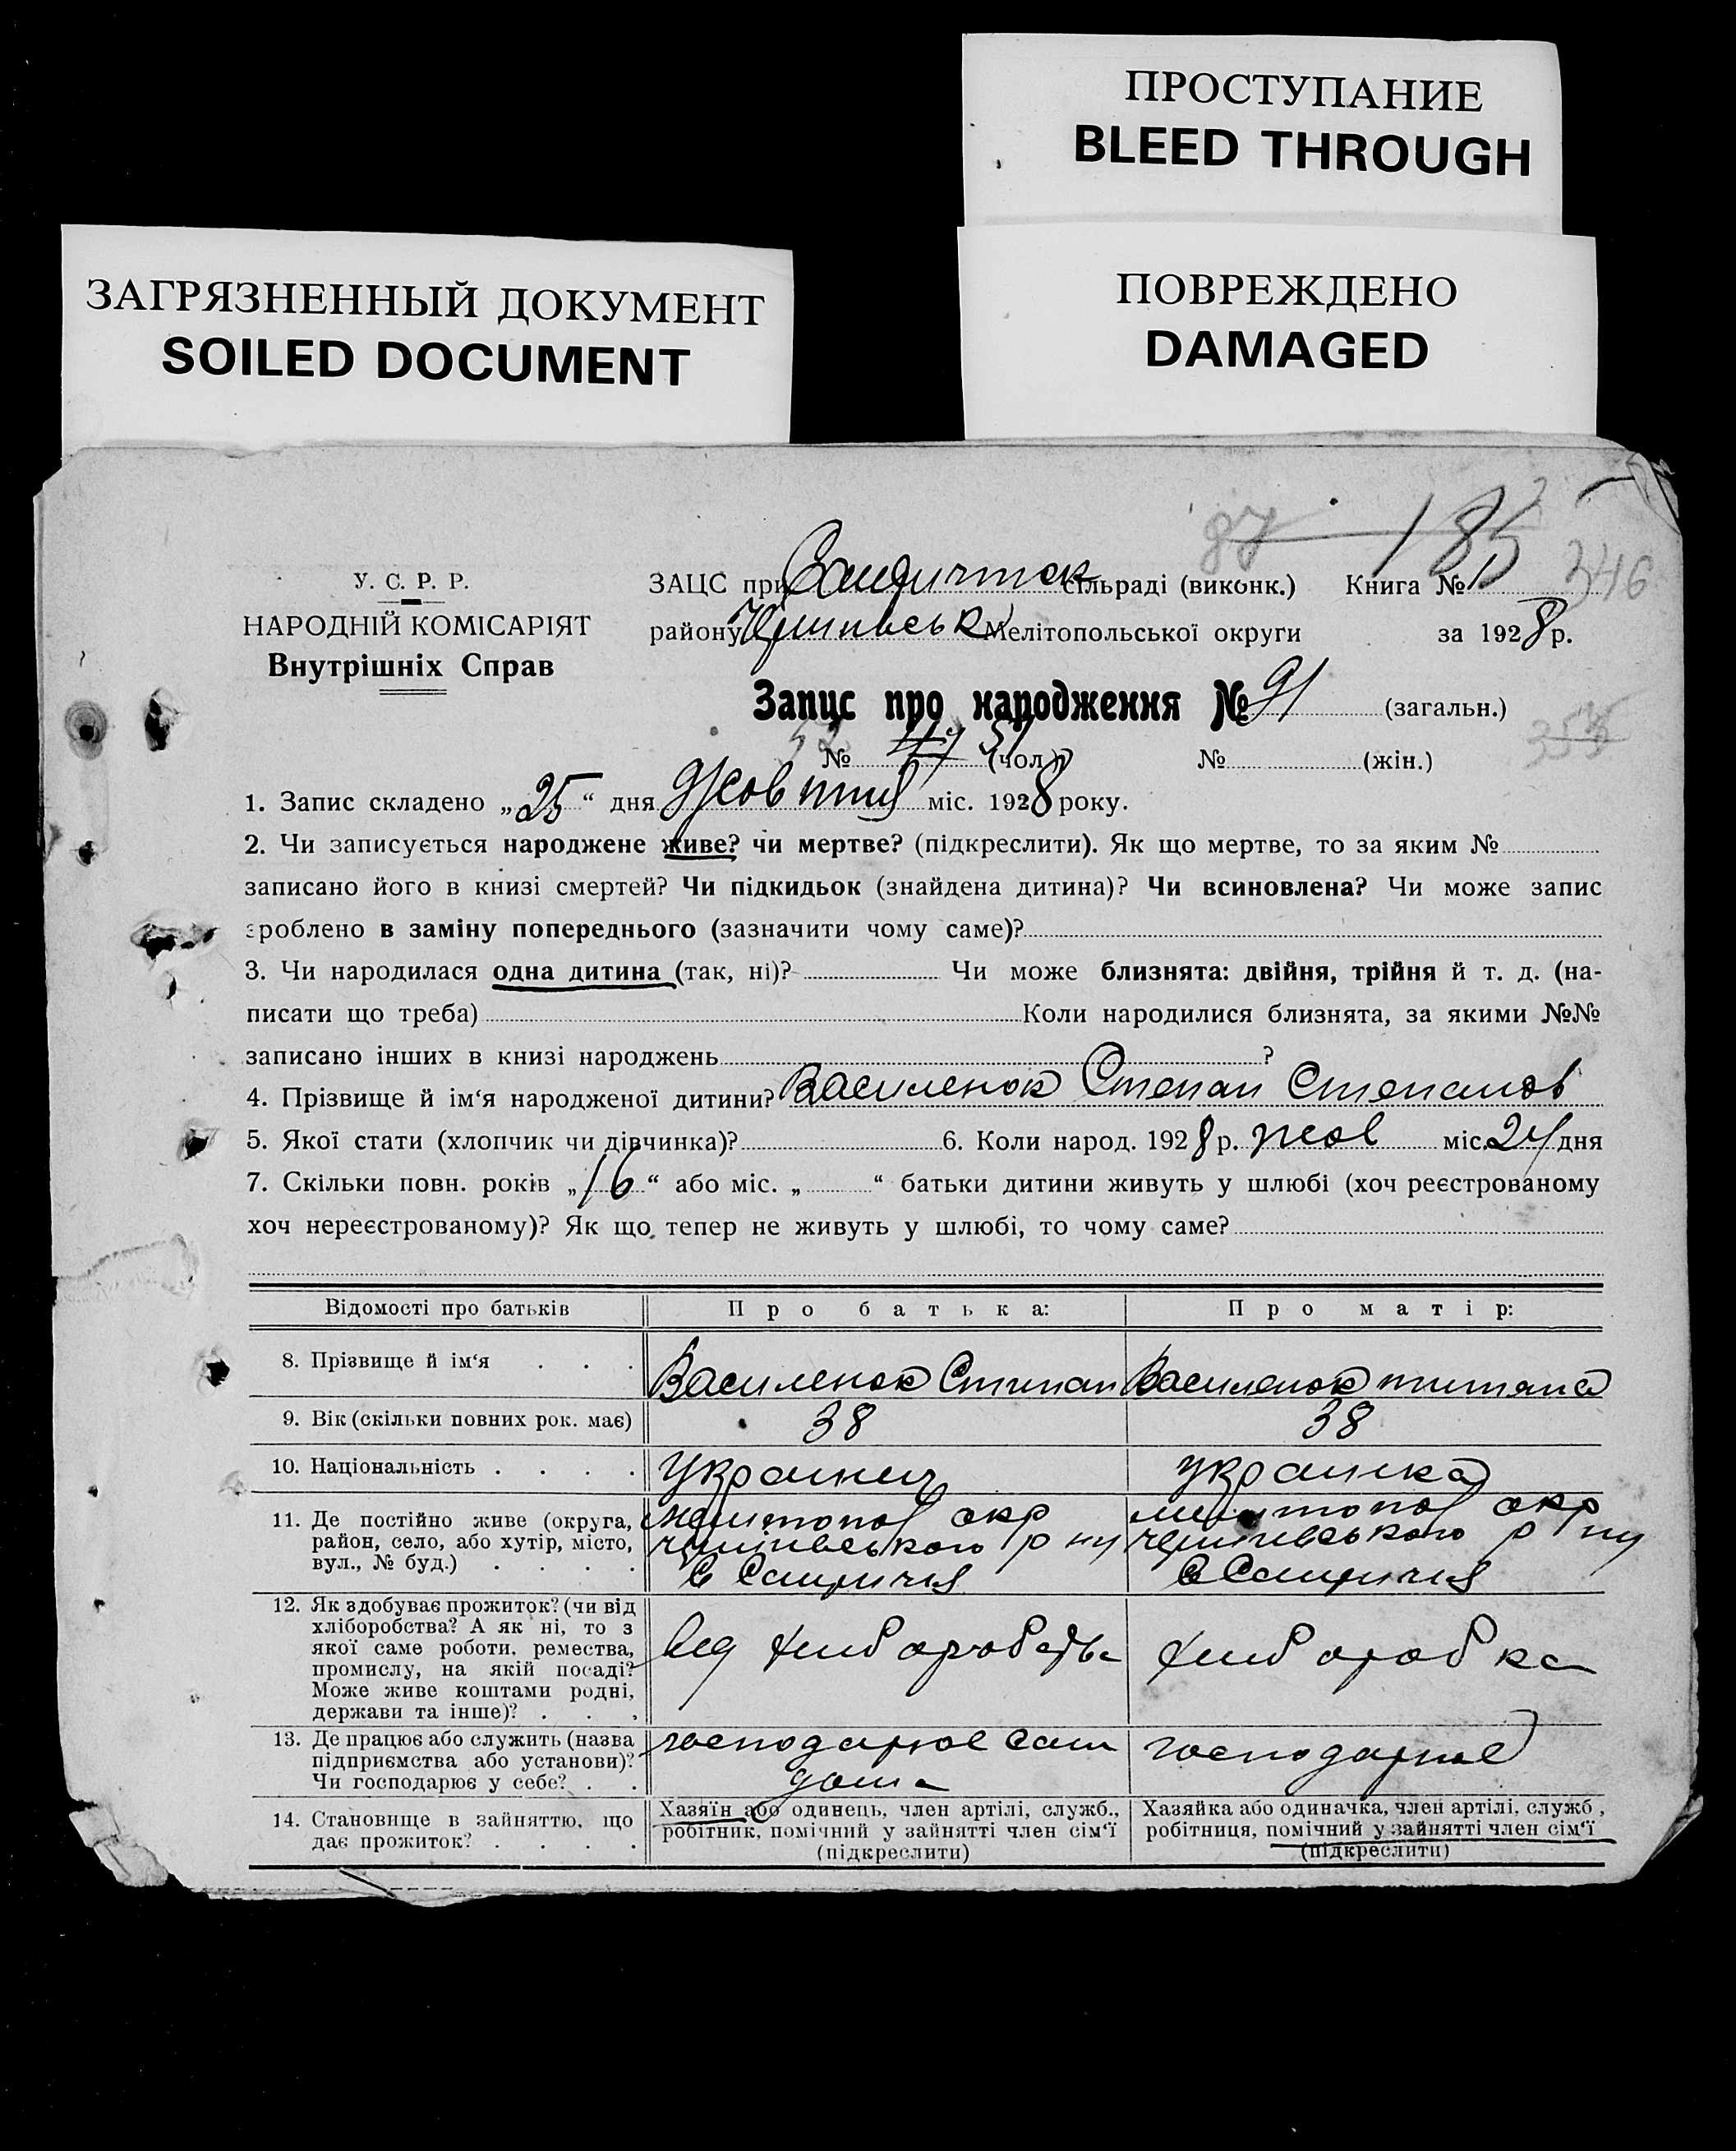 ПРОСТУПАНИЕ
BLEED THROUGH
ЗАГРЯЗНЕННЫЙ ДОКУМЕНТ
SOILED DOCUMENT
ПОВРЕЖДЕНО
DAMAGED
87 185
346
У. С. Р. Р.
НАРОДНІЙ КОМІСАРІЯТ
Внутрішніх Справ
ЗАЦС при сільраді (виконк.) Книга №
району Мелітопольської округи за 1928 р.
Запис про народження № 91 (загальн.)
№ 47 51 (чол.) № (жін.)
52
355
1. Запис складено „25“ дня Жовтня міс. 1928 року.
2. Чи записується народжене живе? чи мертве? (підкреслити). Як що мертве, то за яким №
записано його в книзі смертей? Чи підкидьок (знайдена дитина)? Чи всиновлена? Чи може запис
зроблено в заміну попереднього (зазначити чому саме)?
3. Чи народилася одна дитина (так, ні)? Чи може близнята: двійня, трійня й т. д. (на-
писати що треба) Коли народилися близнята, за якими №№
записано інших в книзі народжень ?
4. Прізвище й ім‘я народженої дитини? Василенок Степан Степанов
5. Якої стати (хлопчик чи дівчинка)? 6. Коли народ. 1928 р. жов міс. 24 дня
7. Скільки повн. років „16“ або міс. „ “ батьки дитини живуть у шлюбі (хоч реєстрованому
хоч нереєстрованому)? Як що тепер не живуть у шлюбі, то чому саме?
Відомості про батьків Про батька: Про матір:
8. Прізвище й ім‘я . . . Василенок Степан Василенок
9. Вік (скільки повних рок. має) 38 38
10. Національність . . . . Украинец украинка
11. Де постійно живе (округа,
район, село, або хутір, місто,
вул., № буд.) . . . .
мелитопол окр
р ну
мелитопол окр
р ну
12. Як здобуває прожиток? (чи від
хліборобства? А як ні, то з
якої саме роботи, ремества,
промислу, на якій посаді?
Може живе коштами родні,
держави та інше)? . . .
від хлиборобства
хлиборобка
13. Де працює або служить (назва
підприємства або установи)?
Чи господарює у себе? . .
господарює сам
дома
господарює
14. Становище в зайняттю, що
дає прожиток? . . . .
Хазяїн або одинець, член артілі, служб.,
робітник, помічний у зайнятті член сім‘ї
(підкреслити)
Хазяйка або одиначка, член артілі, служб,
робітниця, помічний у зайнятті член сім‘ї
(підкреслити)